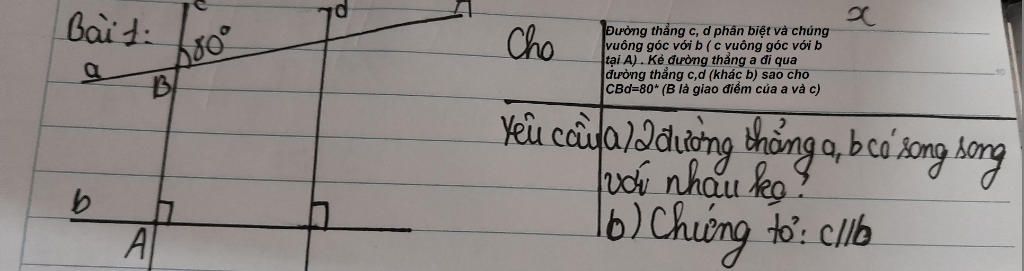 c
d
A
x
Bài 1:
80°
a
B
b
A
Cho
Đường thẳng c, d phân biệt và chúng
vuông góc với b ( c vuông góc với b
tại A) . Kẻ đường thẳng a đi qua
đường thẳng c,d (khác b) sao cho
CBd=80* (B là giao điểm của a và c)
Yêu cầu a) 2 đường thẳng a, b có song song
với nhau ko?
b) Chứng tỏ: c//b